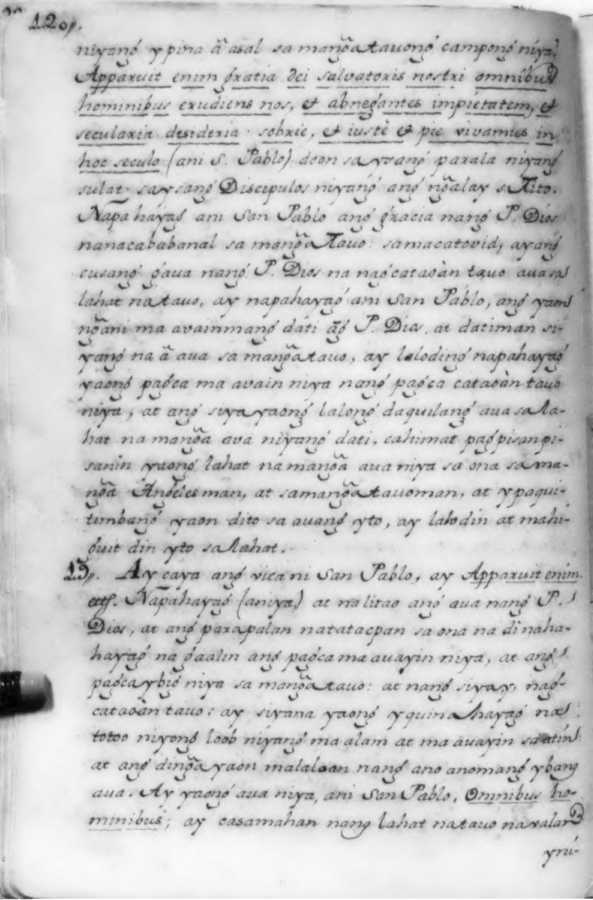 120.
niyang ypina ã asal sa mang̃a tauong campong niya.
Apparuit enim gratia dei salvatoris nostri omnibus
hominibus erudiens nos, et abnegantes impietatem, et
secularia desideria sobrie, et iuste et pie vivamus in
hoc seculo (ani S. Pablo) doon sa ysang parala niyang
sulat sa ysang Discipulos niyang ang ng̃alay s Tito.
Napahayag ani San Pablo ang gracia nang P. Dios
nanacababanal sa mang̃a Tauo: samacatovid, ayang
cusang gaua nang P. Dios na nagcatauan tauo aua sa
lahat na tauo, ay napahayag ani San Pablo, ang yaon
ng̃ani ma auainmang dati ãg P. Dios, at datiman si-
yang na ã aua sa mang̃a tauo, ay laloding napahayag
yaong pagca ma auain niya nang pagca catauan tauo
niya, at ang siya yaong lalong daquilang aua sa la-
hat na mang̃a aua niyang dati, cahimat pagpisanpi-
sanin yaong lahat na mang̃a aua niya sa ona sa ma-
ng̃ã Angeles man, at sa mang̃a tauoman, at ypaqui-
timbang yaon dito sa auang yto, ay lalodin at mahi-
guit din yto sa lahat.
13. Ay caya ang vica ni San Pablo, ay Apparuit enim.
etc. Napahayag (aniya) at nalitao ang aua nang P.
Dios, at ang parapalan natatacpan sa ona na di naha-
hayag na gaalin ang pagca ma auayin niya, at ang
pagcaybig niya sa mang̃a tauo: at nang siyay, nag-
catauan tauo: ay siyana yaong yquinahayag na
totoo niyong loob niyang ma alam at ma auayin sa atin
at ang ding̃a yaon malaloan nang ano anomang ybang
aua. Ay yaong aua niya, ani San Pablo, Omnibus ho-
minibus; ay casamahan nang lahat na tauo na valan
yni-